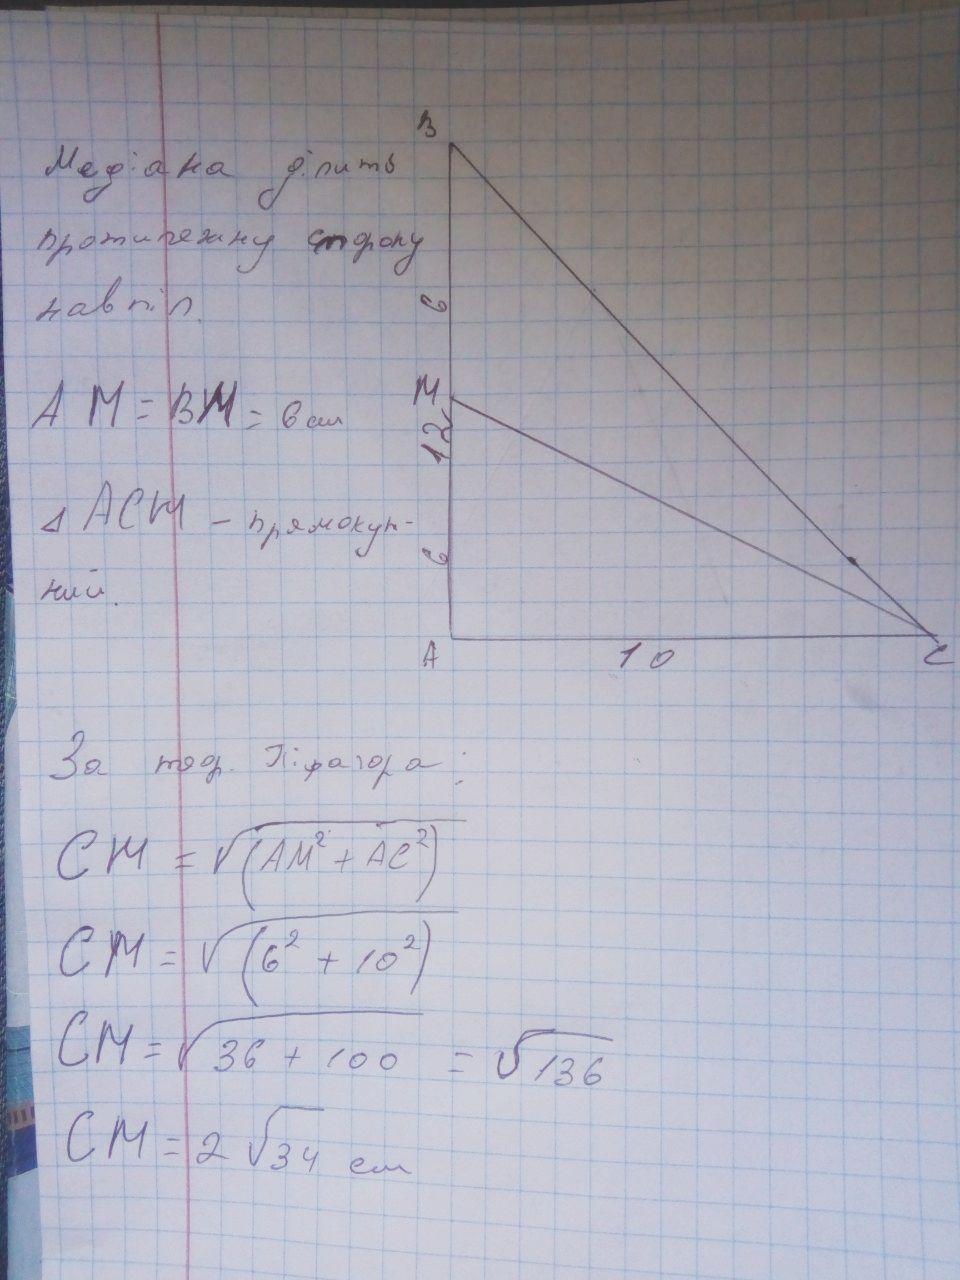 Медіана ділить
протилежну сторону
навпіл.
AM = BM = 6 см
△ ACM – прямокут-
ний.
B
6
M
12
6
A
10
C
За теор. Піфагора:
CM = √(AM² + AC²)
CM = √(6² + 10²)
CM = √36 + 100 = √136
CM = 2√34 см